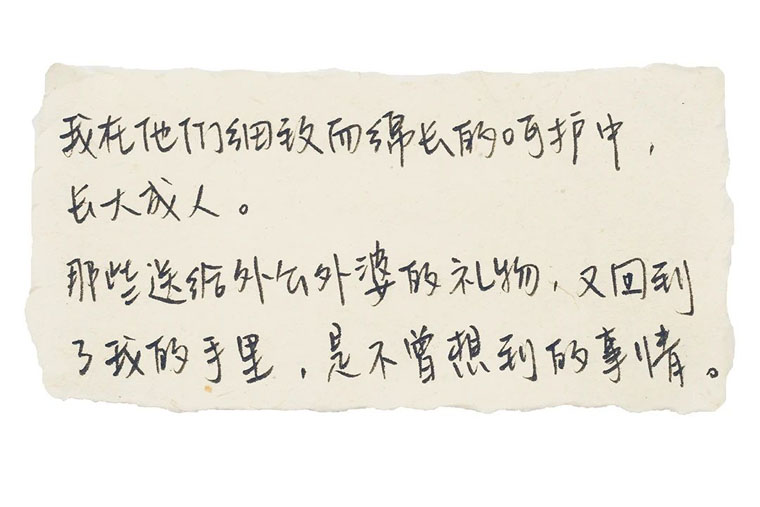 我在他们细致而绵长的呵护中，
长大成人。
那些送给外公外婆的礼物，又回到
了我的手里，是不曾想到的事情。